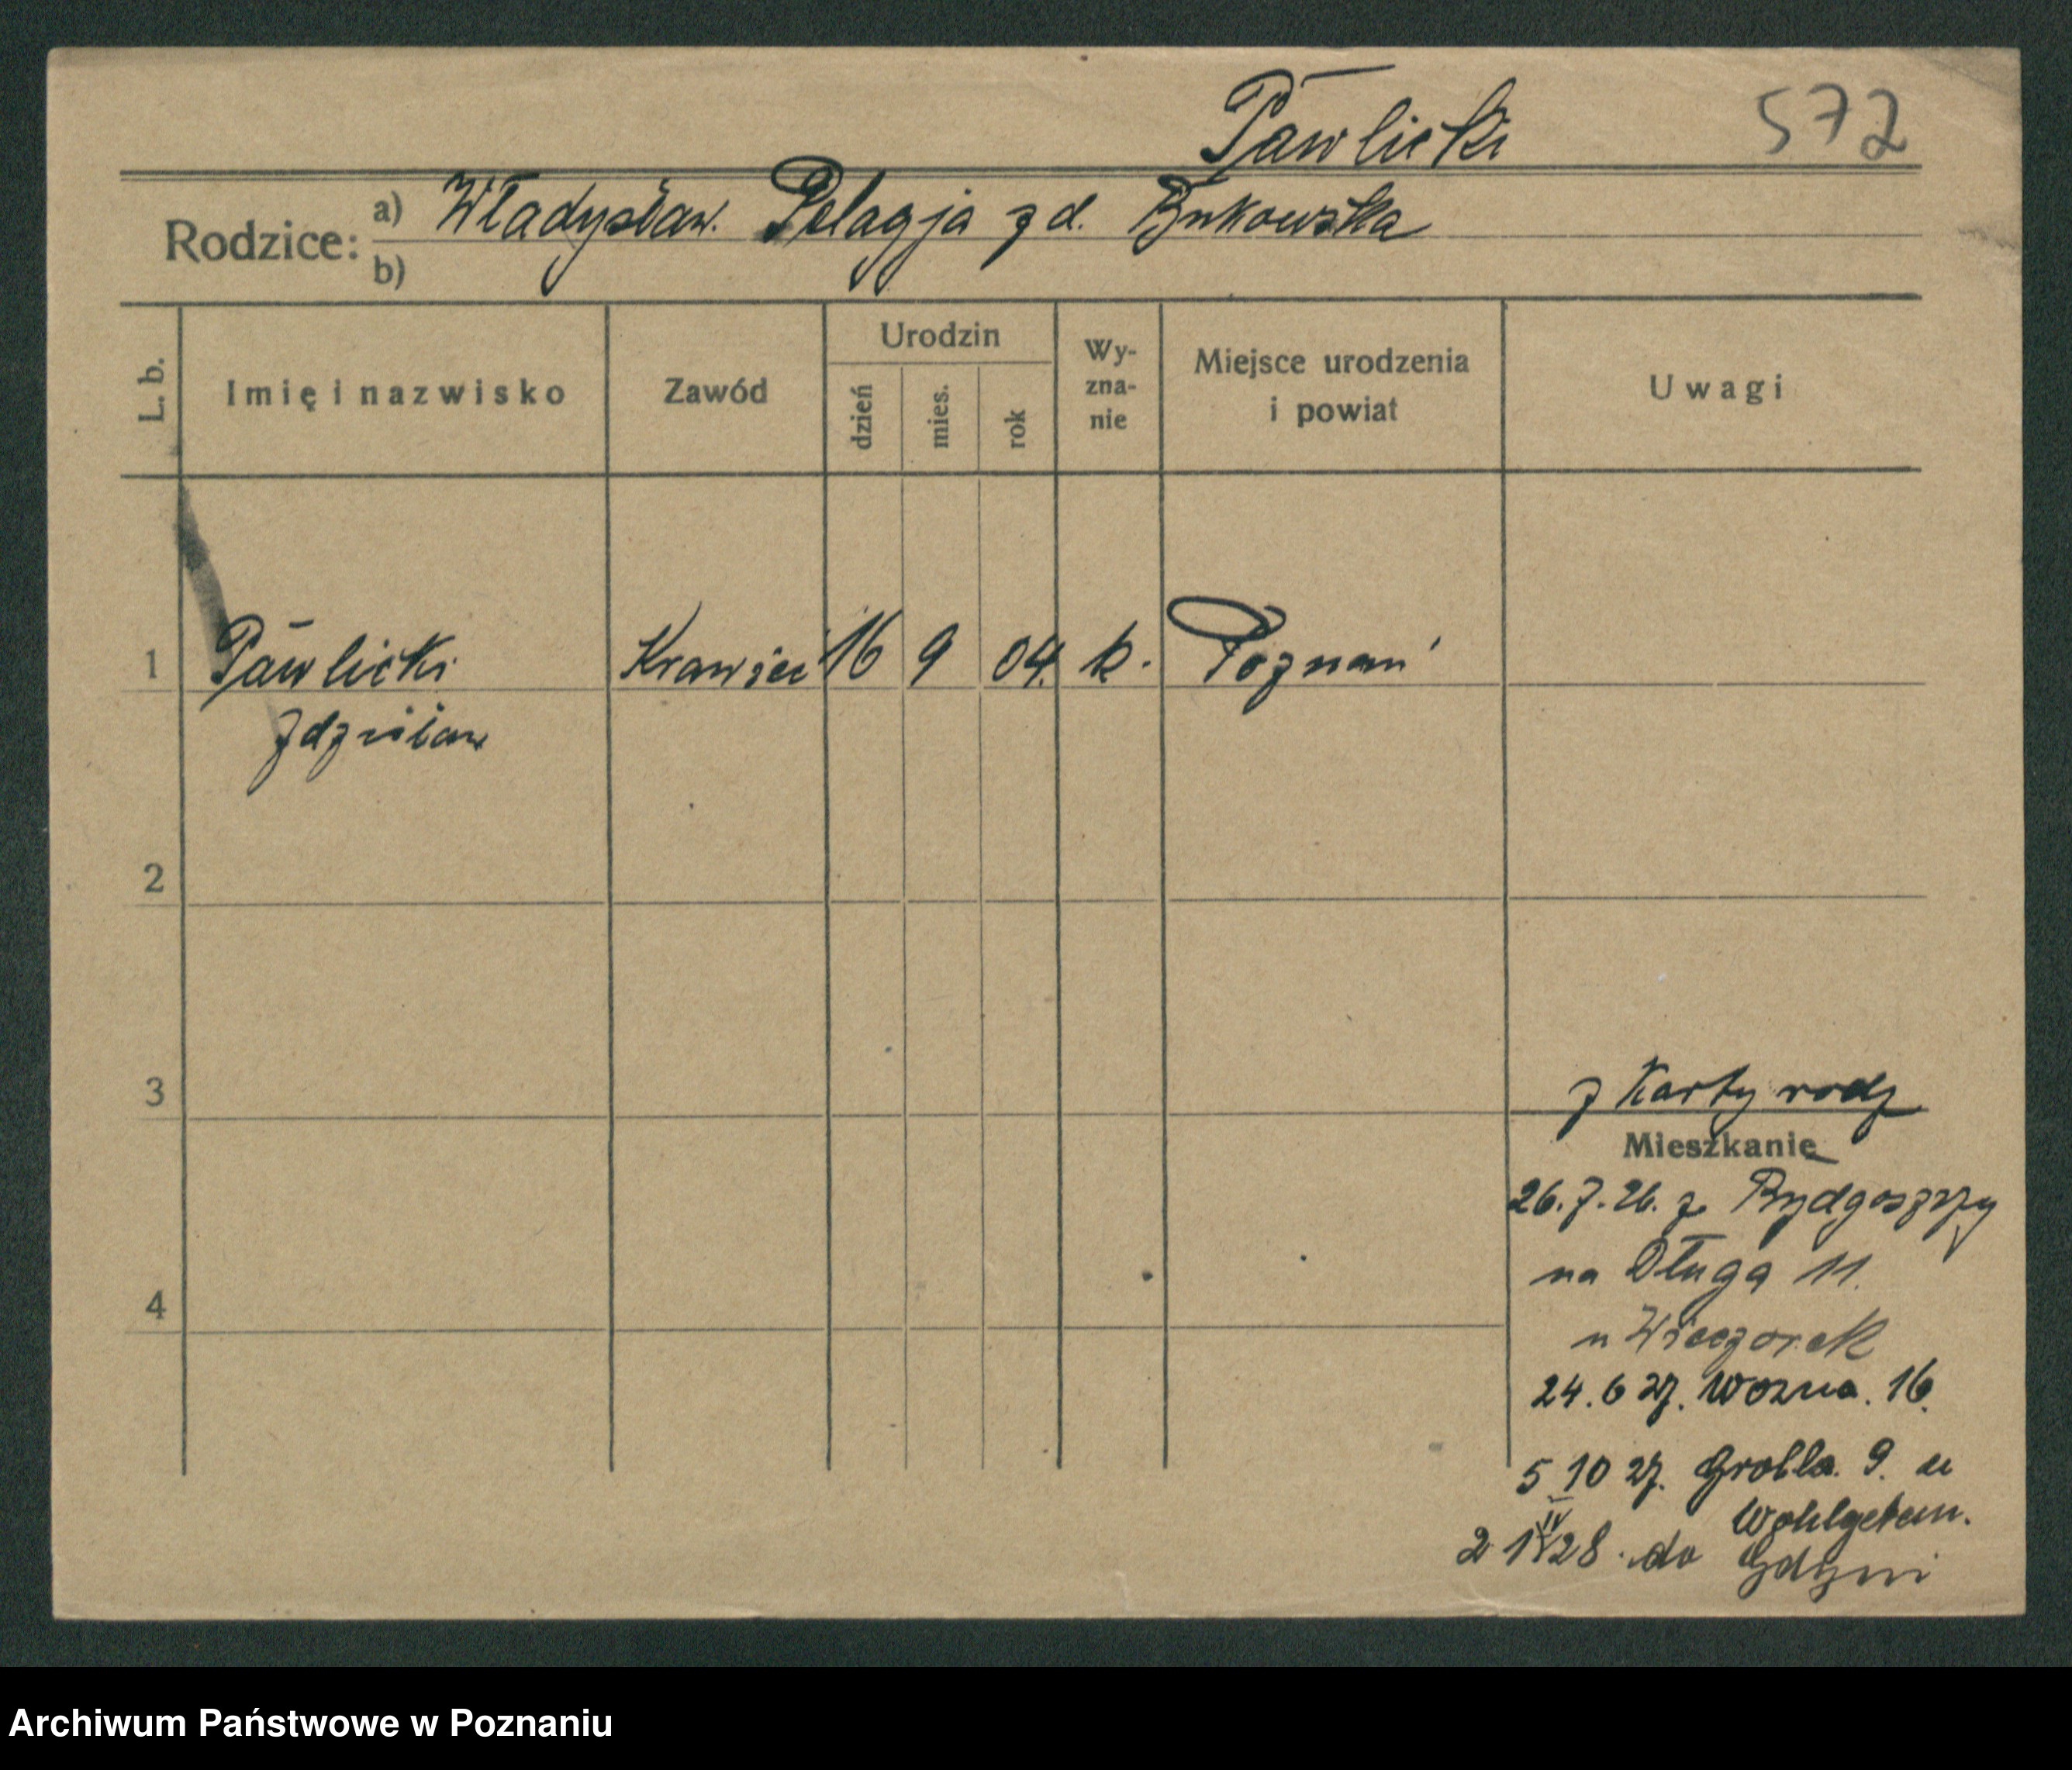 Pawlicki 572
Rodzice: a) Władysław. Pelagja z d. Bukowska
b)
L. b. Imię i nazwisko Zawód Urodzin dzień mies. rok Wy-zna-nie Miejsce urodzenia i powiat Uwagi
1 Pawlicki Krawiec 16 9 04. k. Poznań
Zdzisław
2
3
z Karty rodz
Mieszkanie
26.7.26. z Bydgoszczy
na Długa 11.
4
u Wieczorek
24.6 27. Wozna. 16.
5 10 27. Grobla. 9. u
Wohlgetan.
2 28. do Gdyni
Archiwum Państwowe w Poznaniu